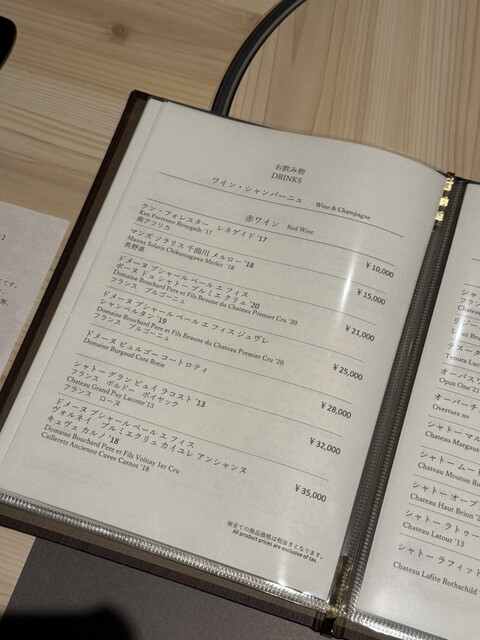 お飲み物
DRINKS
ワイン・シャンパーニュ Wine & Champagne
赤ワイン Red Wine
ケン・フォレスター レネゲイド '17
Ken Forrester Renegade '17
南アフリカ
¥ 10,000
マンズ ソラリス 千曲川 メルロー '18
Manns Solaris Chikumagawa Merlot '18
長野県
¥ 15,000
ドメーヌ ブシャール ペール エ フィス
ボーヌ ドゥ シャトー プルミエ クリュ '20
Domaine Bouchard Pere et Fils Beaune du Chateau Premier Cru '20
フランス ブルゴーニュ
¥ 21,000
ドメーヌ ブシャール ペール エ フィス ジュヴレ
シャンベルタン '19
Domaine Bouchard Pere et Fils Beaune du Chateau Premier Cru '20
フランス ブルゴーニュ
¥ 25,000
ドメーヌ ビュルゴー コートロティ
Domaine Burgaud Cote Rotie
¥ 28,000
シャトー グラン ピュイ ラコスト '13
フランス ボルドー ポイヤック
Chateau Grand Puy Lacoste '13
フランス ローヌ
¥ 32,000
ドメーヌ ブシャール ペール エ フィス
ヴォルネイ プルミエクリュ カイユレ アンシャンヌ
キュヴェ カルノ '18
Domaine Bouchard Pere et Fils Volnay 1er Cru
Caillerets Ancienne Cuvee Carnot '18
¥ 35,000
※全ての商品価格は税抜きとなります。
All product prices are exclusive of tax.
シャ
フラン
Chatea
リジー
テヌータ
Tenuta Luc
オーパスワ
Opus One '21
オーバーチ
Overture nv
シャトー マル
Chateau Margaux
シャトー ムート
Chateau Mouton Ro
シャトー オーブ
Chateau Haut Brion '2
シャトー ラトゥー
Chateau Latour '13
シャトー ラフィット
Chateau Lafite Rothschild